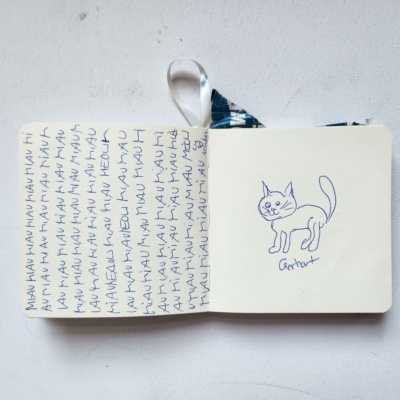 MIAU MIAU MIAU MIAU MIAU MI
AU MIAU MIAU MIAU MIAU M
IAU MIAU MIAU MIAU MIAU
MIAU MIAU MIAU MIAU MIAU M
IAU MIAU MIAU MIAU MIAU
MIAU MEOW MIAU MIAU MEOW
IAU MIAU MEOW MIAU MIAU
MIAU MIAU MIAU MIAU MIAU MI
AU MIAU MIAU MIAU MIAU MI
AU MIAU MIAU MIAU MIAU MIA
U MIAU MIAU MIAU MIAU MEOW
MIAU MIAU MIAU MIAU
Gerhart